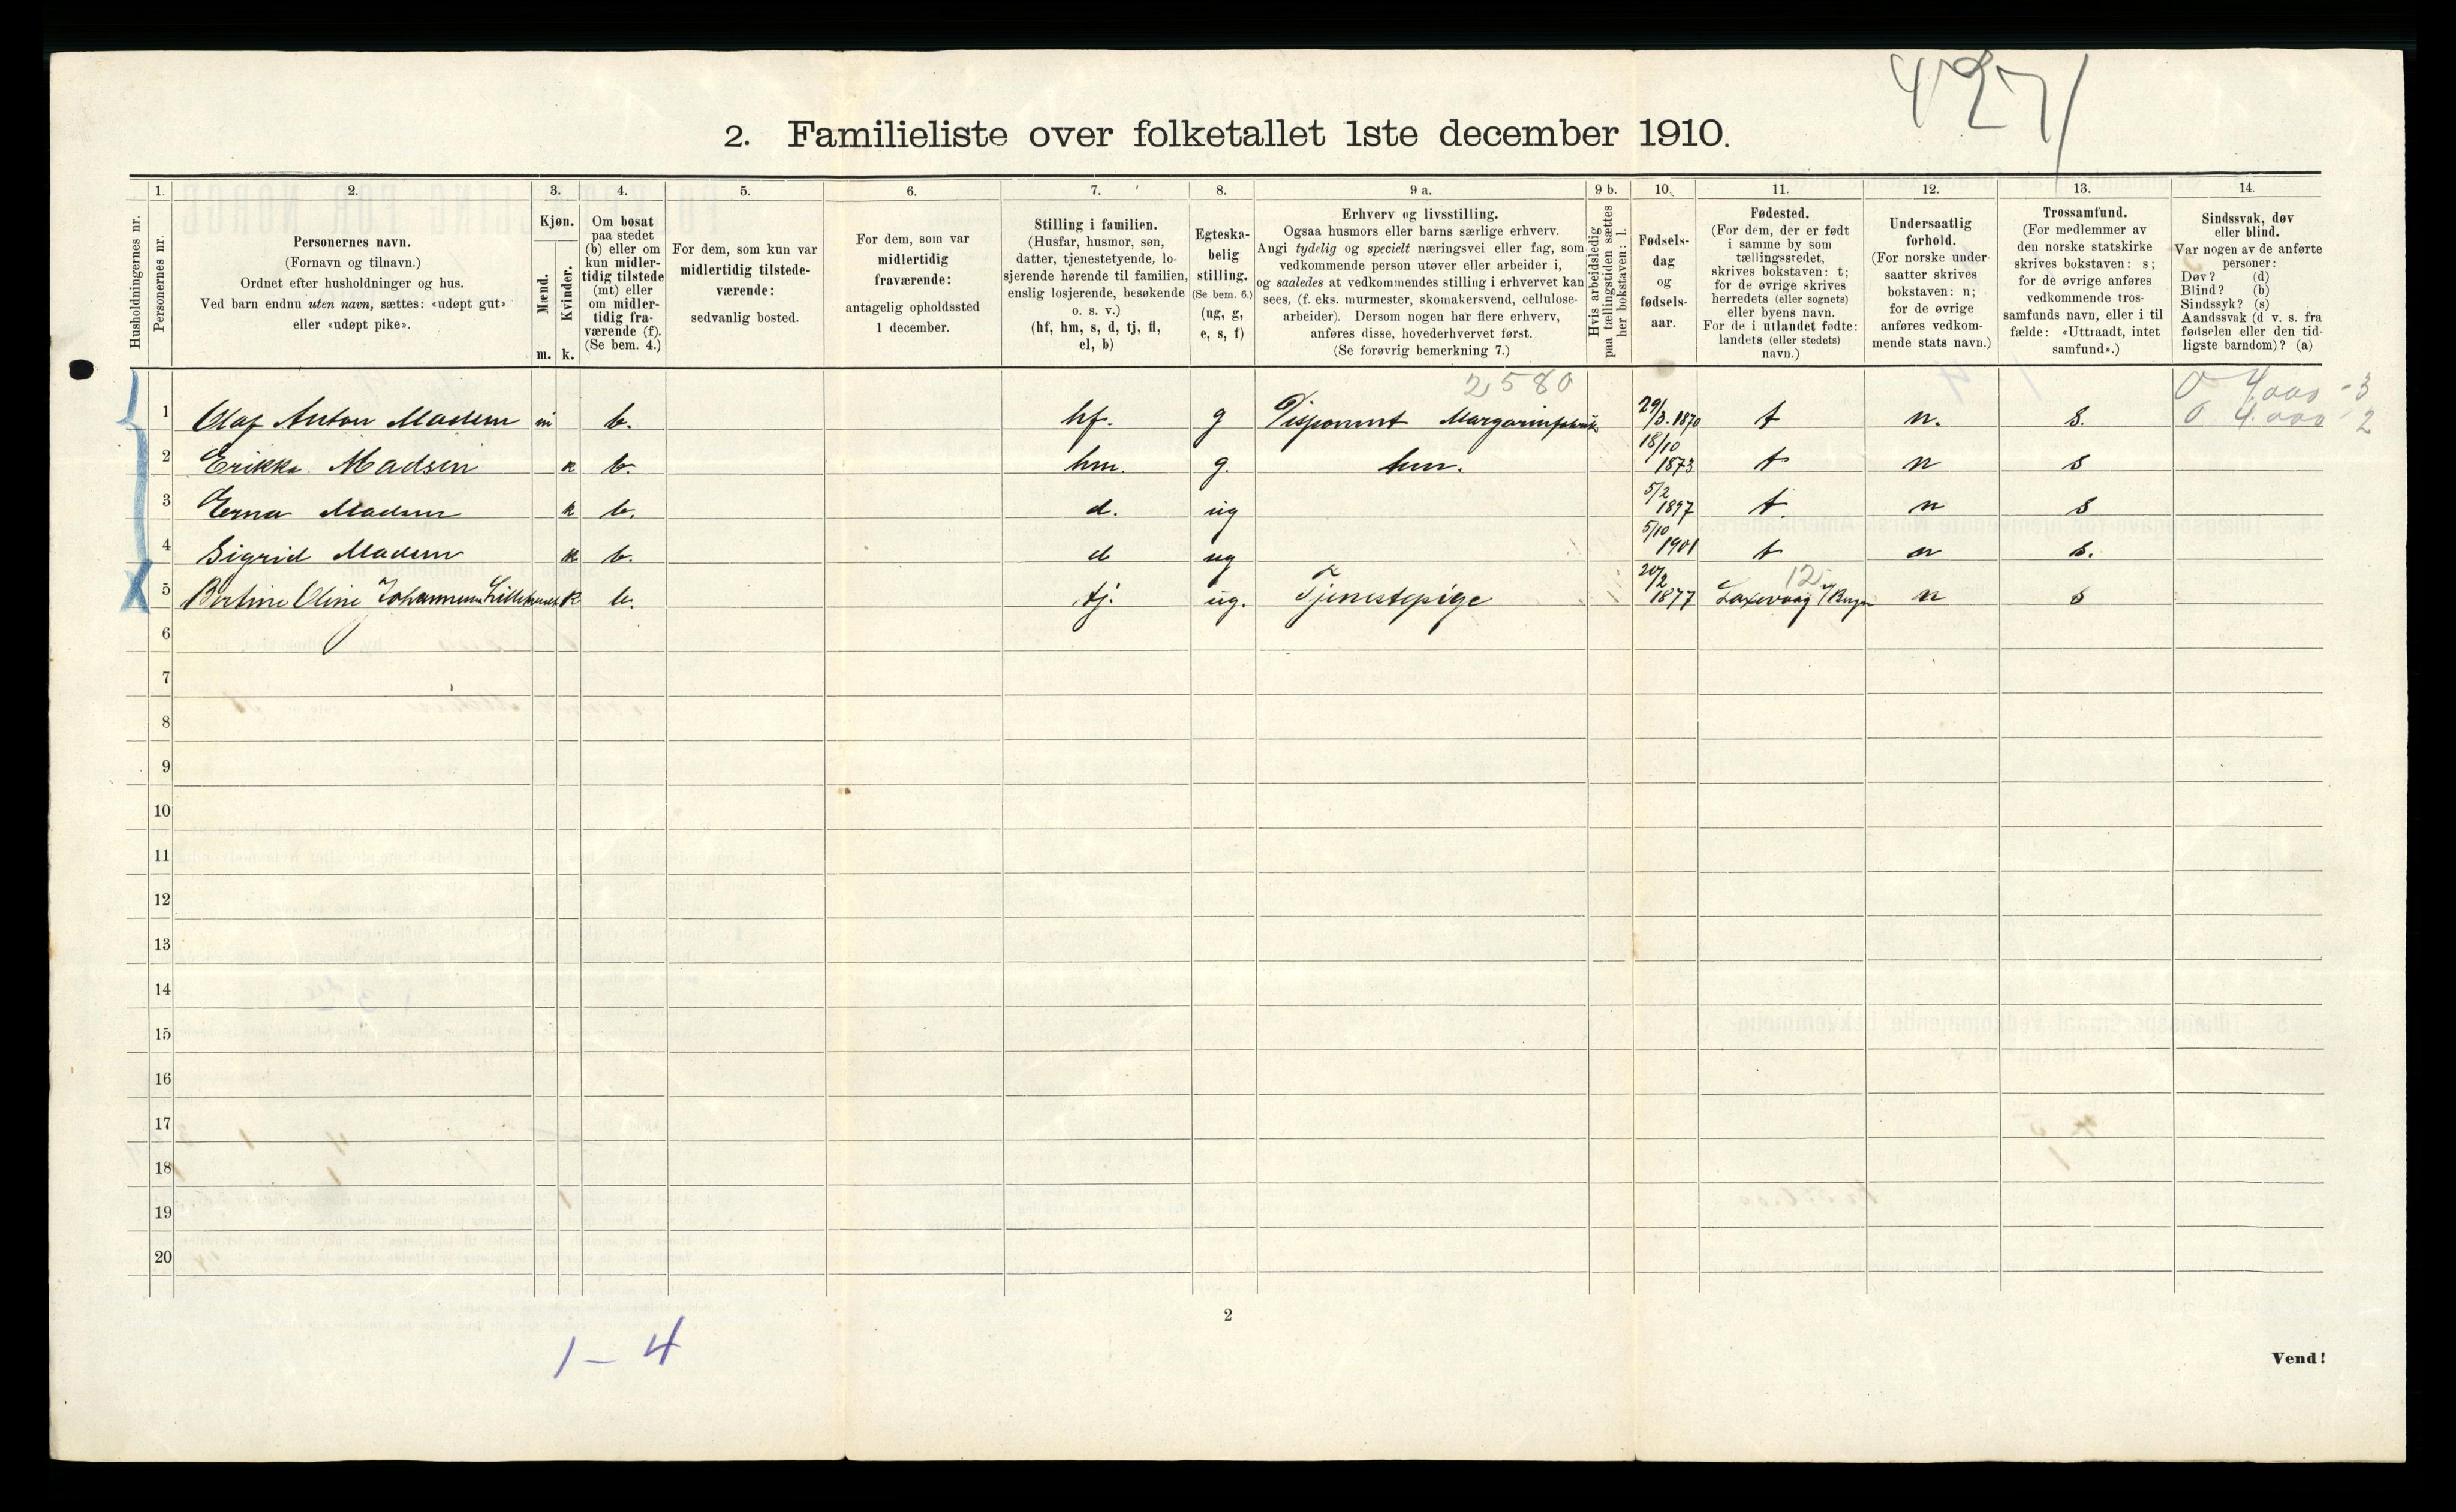 427
2. Familieliste over folketallet 1ste december 1910.
1. 2. 3. 4. 5. 6. 7. 8. 9 a. 9 b. 10. 11. 12. 13. 14.
Husholdningernes nr.
Personernes nr.
Personernes navn.
(Fornavn og tilnavn.)
Ordnet efter husholdninger og hus.
Ved barn endnu uten navn, sættes: «udøpt gut»
eller «udøpt pike».
Kjøn.
Mænd.
Kvinder.
m. k.
Om bosat
paa stedet
(b) eller om
kun midler-
tidig tilstede
(mt) eller
om midler-
tidig fra-
værende (f).
(Se bem. 4.)
For dem, som kun var
midlertidig tilstede-
værende:
sedvanlig bosted.
For dem, som var
midlertidig
fraværende:
antagelig opholdssted
1 december.
Stilling i familien.
(Husfar, husmor, søn,
datter, tjenestetyende, lo-
sjerende hørende til familien,
enslig losjerende, besøkende
o. s. v.)
(hf, hm, s, d, tj, fl,
el, b)
Egteska-
belig
stilling.
(Se bem. 6.)
(ug, g,
e, s, f)
Erhverv og livsstilling.
Ogsaa husmors eller barns særlige erhverv.
Angi tydelig og specielt næringsvei eller fag, som
vedkommende person utøver eller arbeider i,
og saaledes at vedkommendes stilling i erhvervet kan
sees, (f. eks. murmester, skomakersvend, cellulose-
arbeider). Dersom nogen har flere erhverv,
anføres disse, hovederhvervet først.
(Se forøvrig bemerkning 7.)
Hvis arbeidsledig
paa tællingstiden sættes
her bokstaven: l.
Fødsels-
dag
og
fødsels-
aar.
Fødested.
(For dem, der er født
i samme by som
tællingsstedet,
skrives bokstaven: t;
for de øvrige skrives
herredets (eller sognets)
eller byens navn.
For de i utlandet fødte:
landets (eller stedets)
navn.)
Undersaatlig
forhold.
(For norske under-
saatter skrives
bokstaven: n;
for de øvrige
anføres vedkom-
mende stats navn.)
Trossamfund.
(For medlemmer av
den norske statskirke
skrives bokstaven: s;
for de øvrige anføres
vedkommende tros-
samfunds navn, eller i til
fælde: «Uttraadt, intet
samfund».)
Sindssvak, døv
eller blind.
Var nogen av de anførte
personer:
Døv? (d)
Blind? (b)
Sindssyk? (s)
Aandssvak (d v. s. fra
fødselen eller den tid-
ligste barndom)? (a)
2,580
0 4.000 - 3
0 4.000 - 2
1 Olaf Anton Madsen m b. hf. g Disponent Margarinfabrik 29/3.1870 t n. s.
2 Erikka Madsen k b. hm. g. hm. 18/10 1873 t n s
3 Erna Madsen k b. d. ug 5/2 1897 t n s
4 Sigrid Madsen k b. d ug 5/10 1901 t n s.
12
5 Bertine Oline Johannesen k b. tj. ug. Tjenestepige 20/2 1877 Laxevaag v/ Bergen n s
6
7
8
9
10
11
12
13
14
15
16
17
18
19
20
2
1 - 4
Vend!